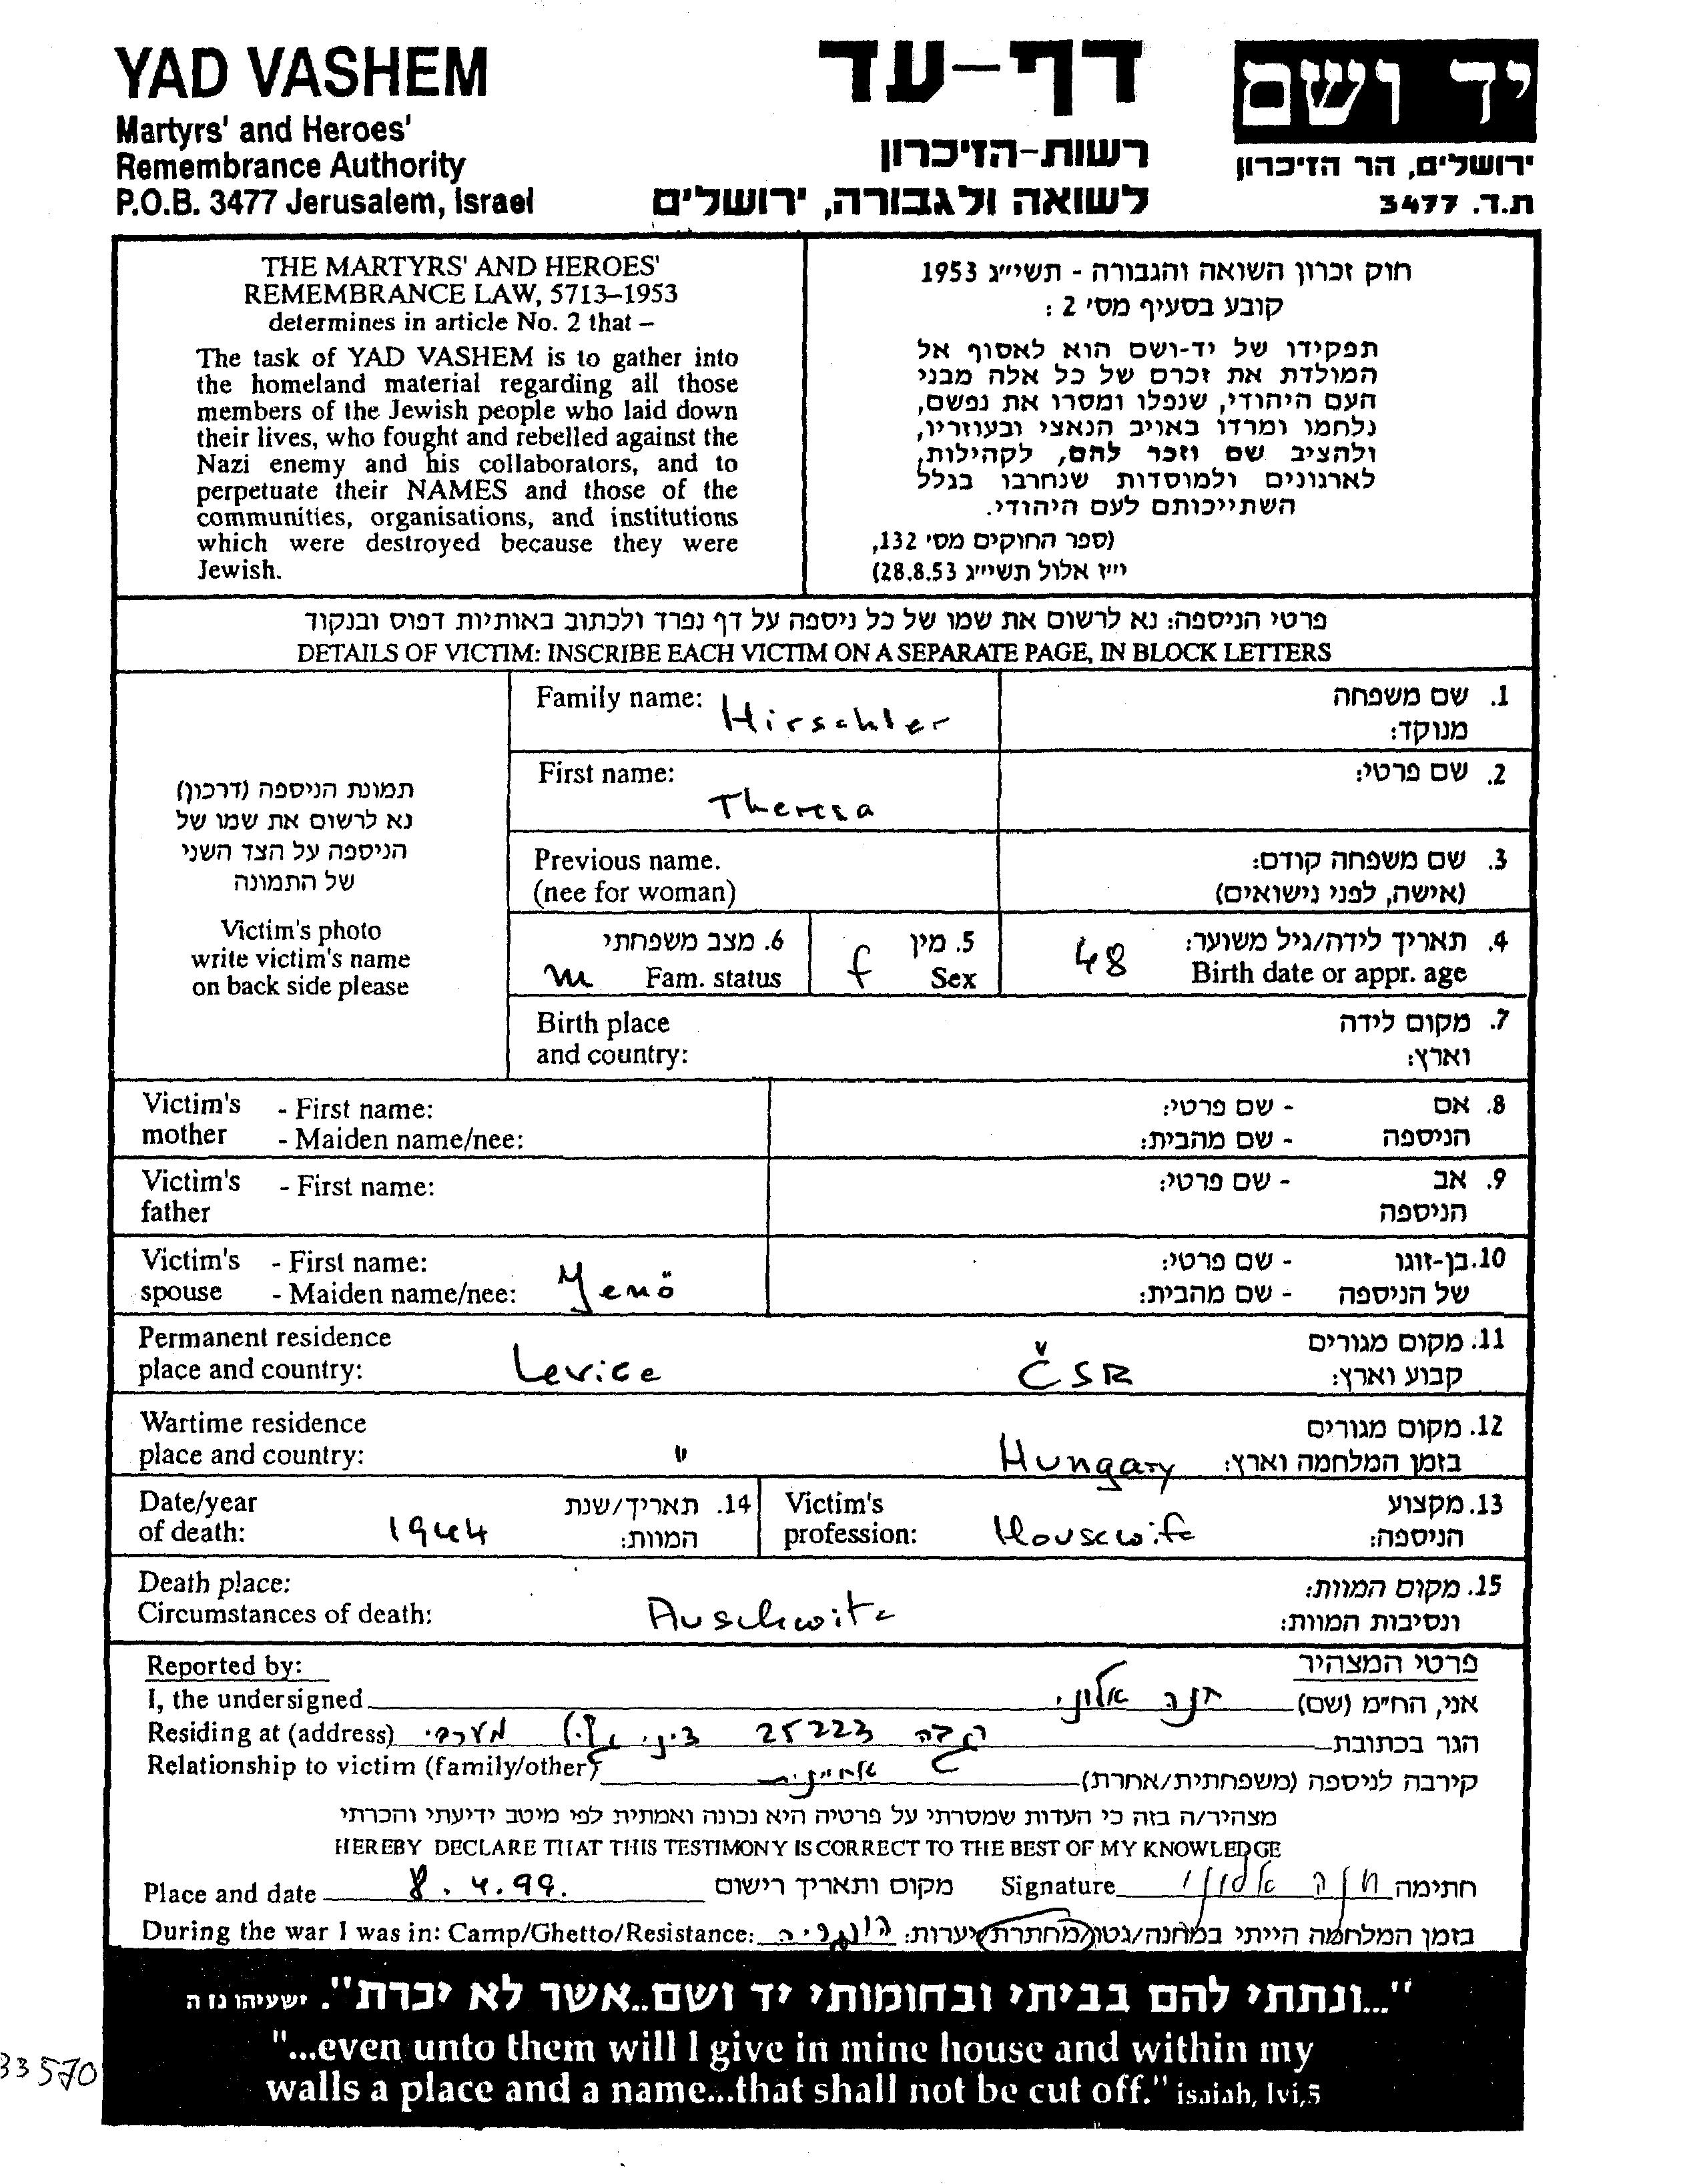 YAD VASHEM
Martyrs' and Heroes'
Remembrance Authority
P.O.B. 3477 Jerusalem, Israel
דף-עד
רשות-הזיכרון
לשואה ולגבורה, ירושלים
יד ושם
ירושלים, הר הזיכרון
ת.ד. 3477
THE MARTYRS' AND HEROES'
REMEMBRANCE LAW, 5713–1953
determines in article No. 2 that –
The task of YAD VASHEM is to gather into
the homeland material regarding all those
members of the Jewish people who laid down
their lives, who fought and rebelled against the
Nazi enemy and his collaborators, and to
perpetuate their NAMES and those of the
communities, organisations, and institutions
which were destroyed because they were
Jewish.
חוק זכרון השואה והגבורה - תשי״ג 1953
קובע בסעיף מס' 2 :
תפקידו של יד-ושם הוא לאסוף אל
המולדת את זכרם של כל אלה מבני
העם היהודי, שנפלו ומסרו את נפשם,
נלחמו ומרדו באויב הנאצי ובעוזריו,
ולהציב שם וזכר להם, לקהילות,
לארגונים ולמוסדות שנחרבו בגלל
השתייכותם לעם היהודי.
(ספר החוקים מס' 132,
י״ז אלול תשי״ג 28.8.53)
פרטי הניספה: נא לרשום את שמו של כל ניספה על דף נפרד ולכתוב באותיות דפוס ובנקוד
DETAILS OF VICTIM: INSCRIBE EACH VICTIM ON A SEPARATE PAGE, IN BLOCK LETTERS
תמונת הניספה (דרכון)
נא לרשום את שמו של
הניספה על הצד השני
של התמונה
Victim's photo
write victim's name
on back side please
Family name: Hirschler 1. שם משפחה
מנוקד:
First name: 2. שם פרטי:
Theresa
Previous name. 3. שם משפחה קודם:
(nee for woman) (אישה, לפני נישואים)
6. מצב משפחתי 5. מין 4. תאריך לידה/גיל משוער:
m Fam. status f Sex 48 Birth date or appr. age
Birth place 7. מקום לידה
and country: וארץ:
Victim's - First name: - שם פרטי: 8. אם
mother - Maiden name/nee: - שם מהבית: הניספה
Victim's - First name: - שם פרטי: 9. אב
father הניספה
Victim's - First name: - שם פרטי: 10. בן-זוגו
spouse - Maiden name/nee: Yenö - שם מהבית: של הניספה
Permanent residence 11. מקום מגורים
place and country: Levice ČSR קבוע וארץ:
Wartime residence 12. מקום מגורים
place and country: " Hungary בזמן המלחמה וארץ:
Date/year 14. תאריך/שנת Victim's 13. מקצוע
of death: 1944 המוות: profession: Housewife הניספה:
Death place: 15. מקום המוות:
Circumstances of death: Auschwitz ונסיבות המוות:
Reported by: פרטי המצהיר
I, the undersigned חנה אלוני אני, החי״מ (שם)
Residing at (address) 25223 הגר בכתובת
Relationship to victim (family/other) קירבה לניספה (משפחתית/אחרת)
מצהיר/ה בזה כי העדות שמסרתי על פרטיה היא נכונה ואמתית לפי מיטב ידיעתי והכרתי
HEREBY DECLARE THAT THIS TESTIMONY IS CORRECT TO THE BEST OF MY KNOWLEDGE
Place and date 8.4.99. מקום ותאריך רישום Signature חנה אלוני חתימה
During the war I was in: Camp/Ghetto/Resistance: הונגריה בזמן המלחמה הייתי במחנה/גטו/מחתרת/יערות:
"...ונתתי להם בביתי ובחומותי יד ושם..אשר לא יכרת". ישעיהו נו ה
"...even unto them will I give in mine house and within my
walls a place and a name...that shall not be cut off." isaiah, lvi,5
33570